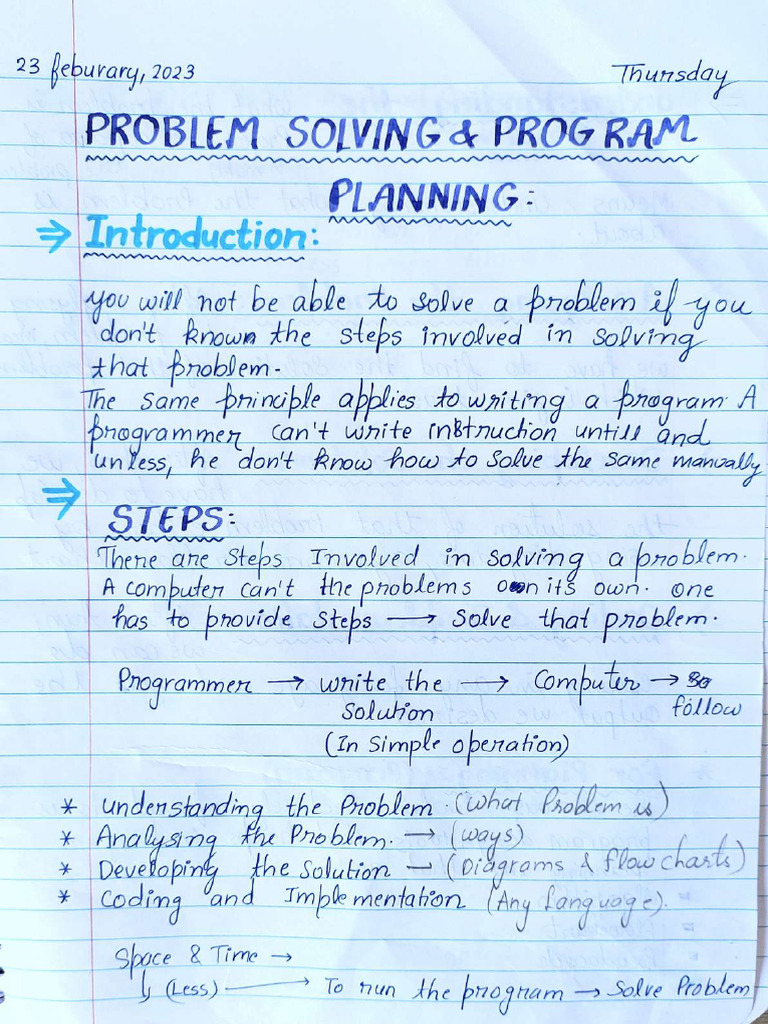 23 feburary, 2023 Thursday
PROBLEM SOLVING & PROGRAM
PLANNING:
⇒ Introduction:
you will not be able to solve a problem if you
don't known the steps involved in solving
that problem.
The same principle applies to writing a program. A
programmer can't write instruction untill and
unless, he don't know how to solve the same manually
⇒
STEPS:
There are steps Involved in solving a problem.
A computer can't the problems on its own. one
has to provide steps → solve that problem.
Programmer → write the → Computer → so
solution follow
(In simple operation)
* understanding the Problem. (What Problem is)
* Analysing the Problem. → (ways)
* Developing the solution — (Diagrams & flow charts)
* Coding and Implementation (Any language).
Space & Time →
↳ (Less) → To run the program → Solve Problem